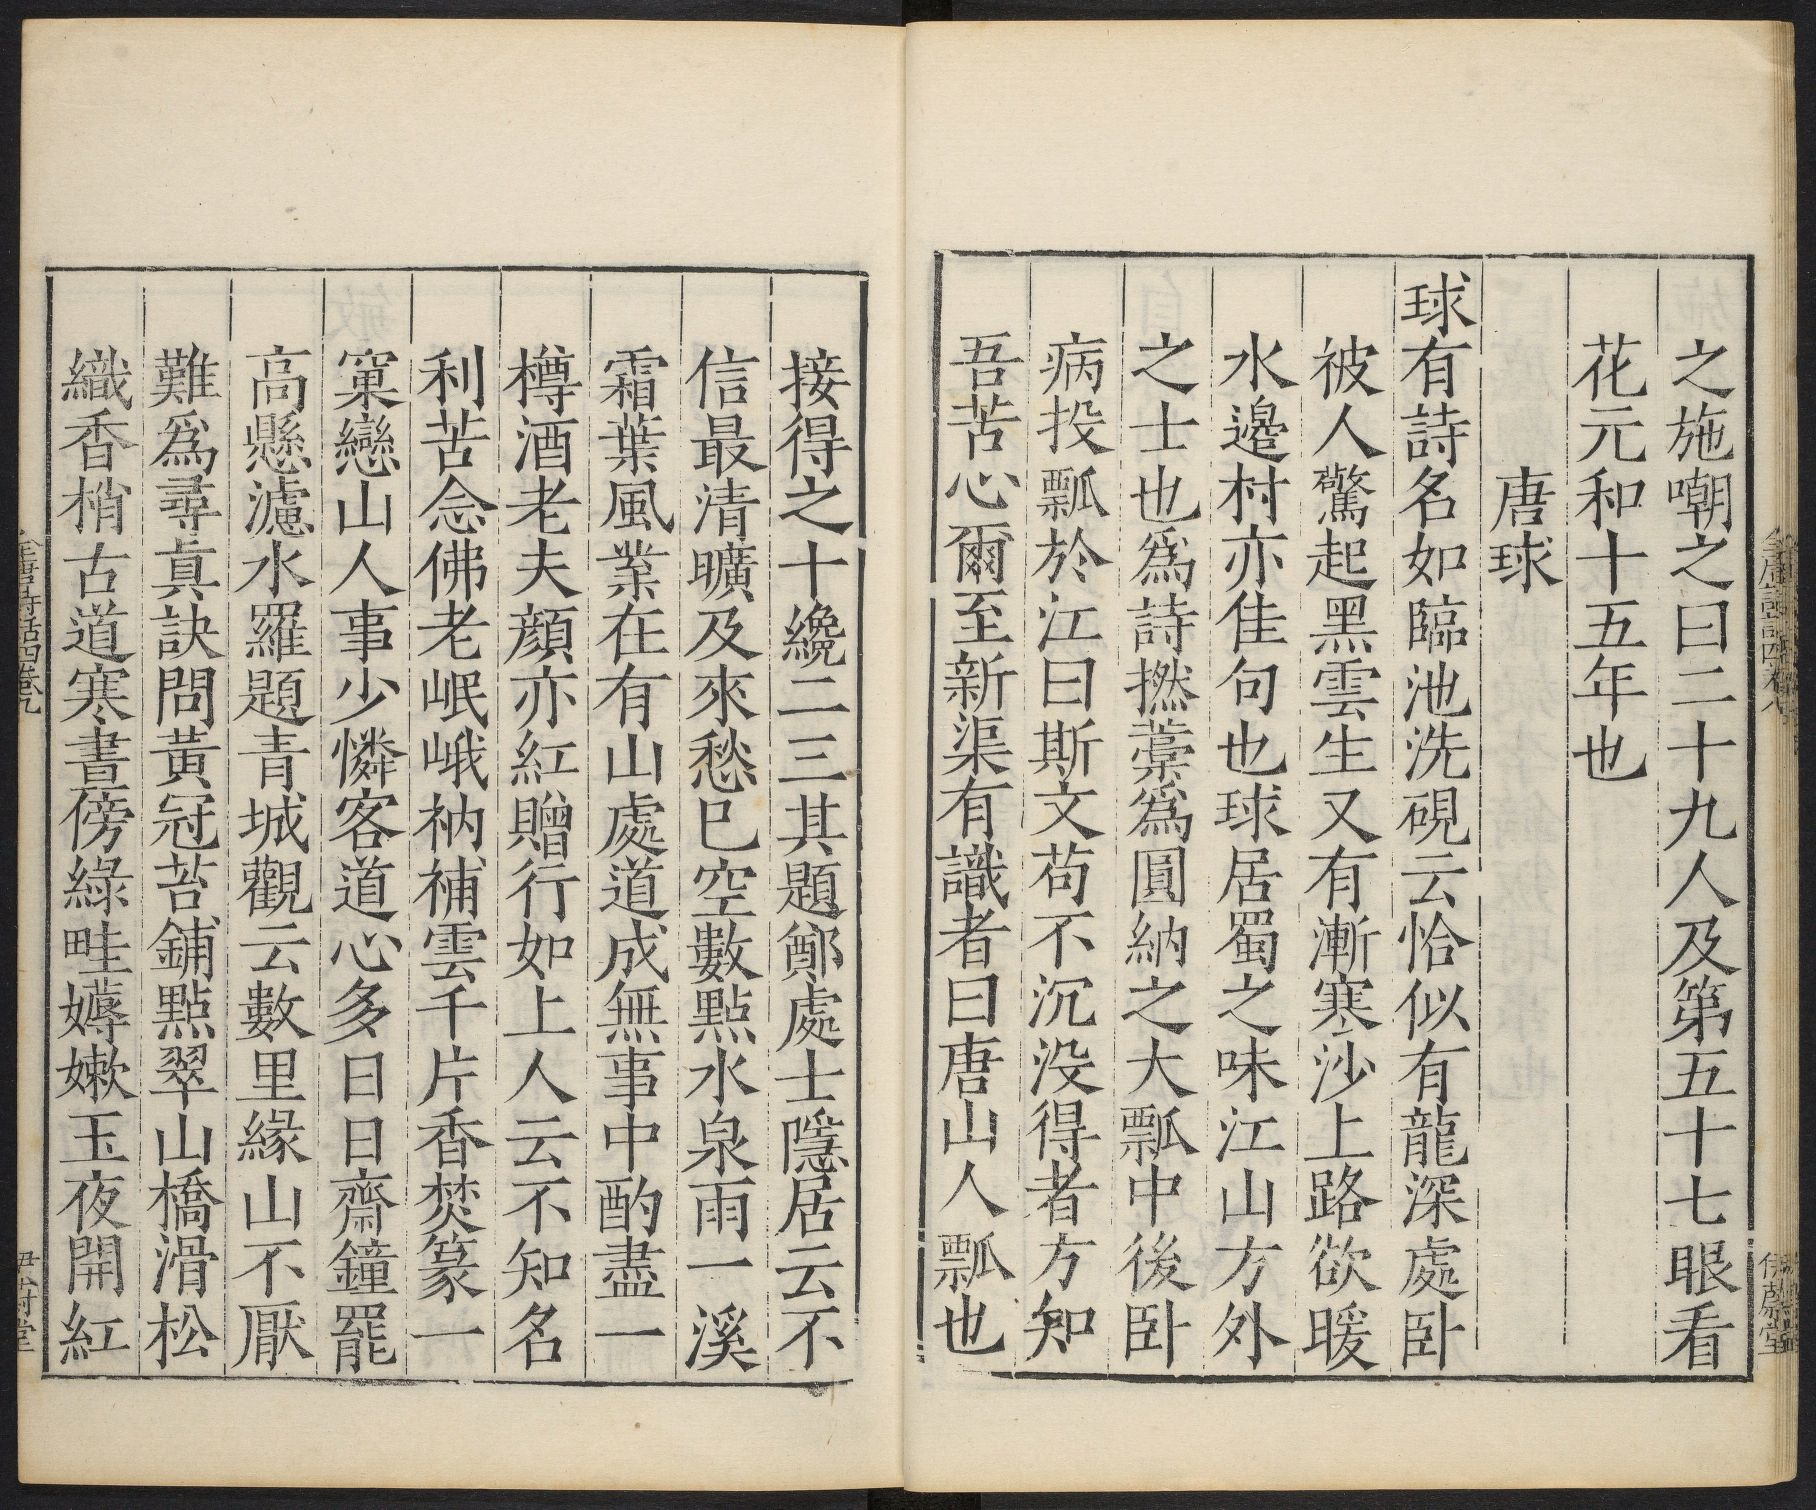 之施嘲之曰二十九人及第五十七眼看
花元和十五年也
唐球
球有詩名如臨池洗硯云恰似有龍深處卧
被人驚起黑雲生又有漸寒沙上路欲暖
水邊村亦佳句也球居蜀之味江山方外
之士也爲詩撚藁爲圓納之大瓢中後卧
病投瓢於江曰斯文苟不沉没得者方知
吾苦心爾至新渠有識者曰唐山人瓢也
接得之十纔二三其題鄭處士隱居云不
信最清曠及來愁已空數點水泉雨一溪
霜葉風業在有山處道成無事中酌盡一
樽酒老夫顔亦紅贈行如上人云不知名
利苦念佛老岷峨衲補雲千片香焚篆一
窠戀山人事少憐客道心多日日齋鐘罷
高懸濾水羅題青城觀云數里緣山不厭
難爲尋眞訣問黃冠苔鋪點翠山橋滑松
織香梢古道寒晝傍綠畦薅嫩玉夜開紅